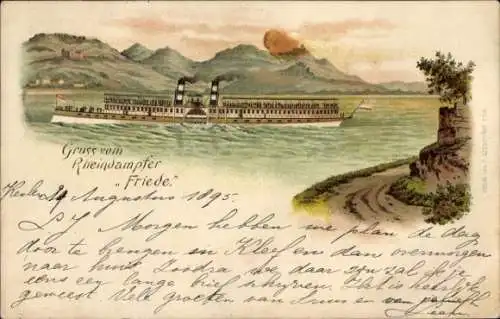 Gruss vom
Rheindampfer
"Friede."
29 Augustus 1895.
Morgen hebben we plan de dag
door te brengen en Kleef en dan overmorgen
naar huis. Zoodra we daar zijn zal ik je
eens een lange brief schrijven. Het is heerlijk
geweest. Vele groeten van